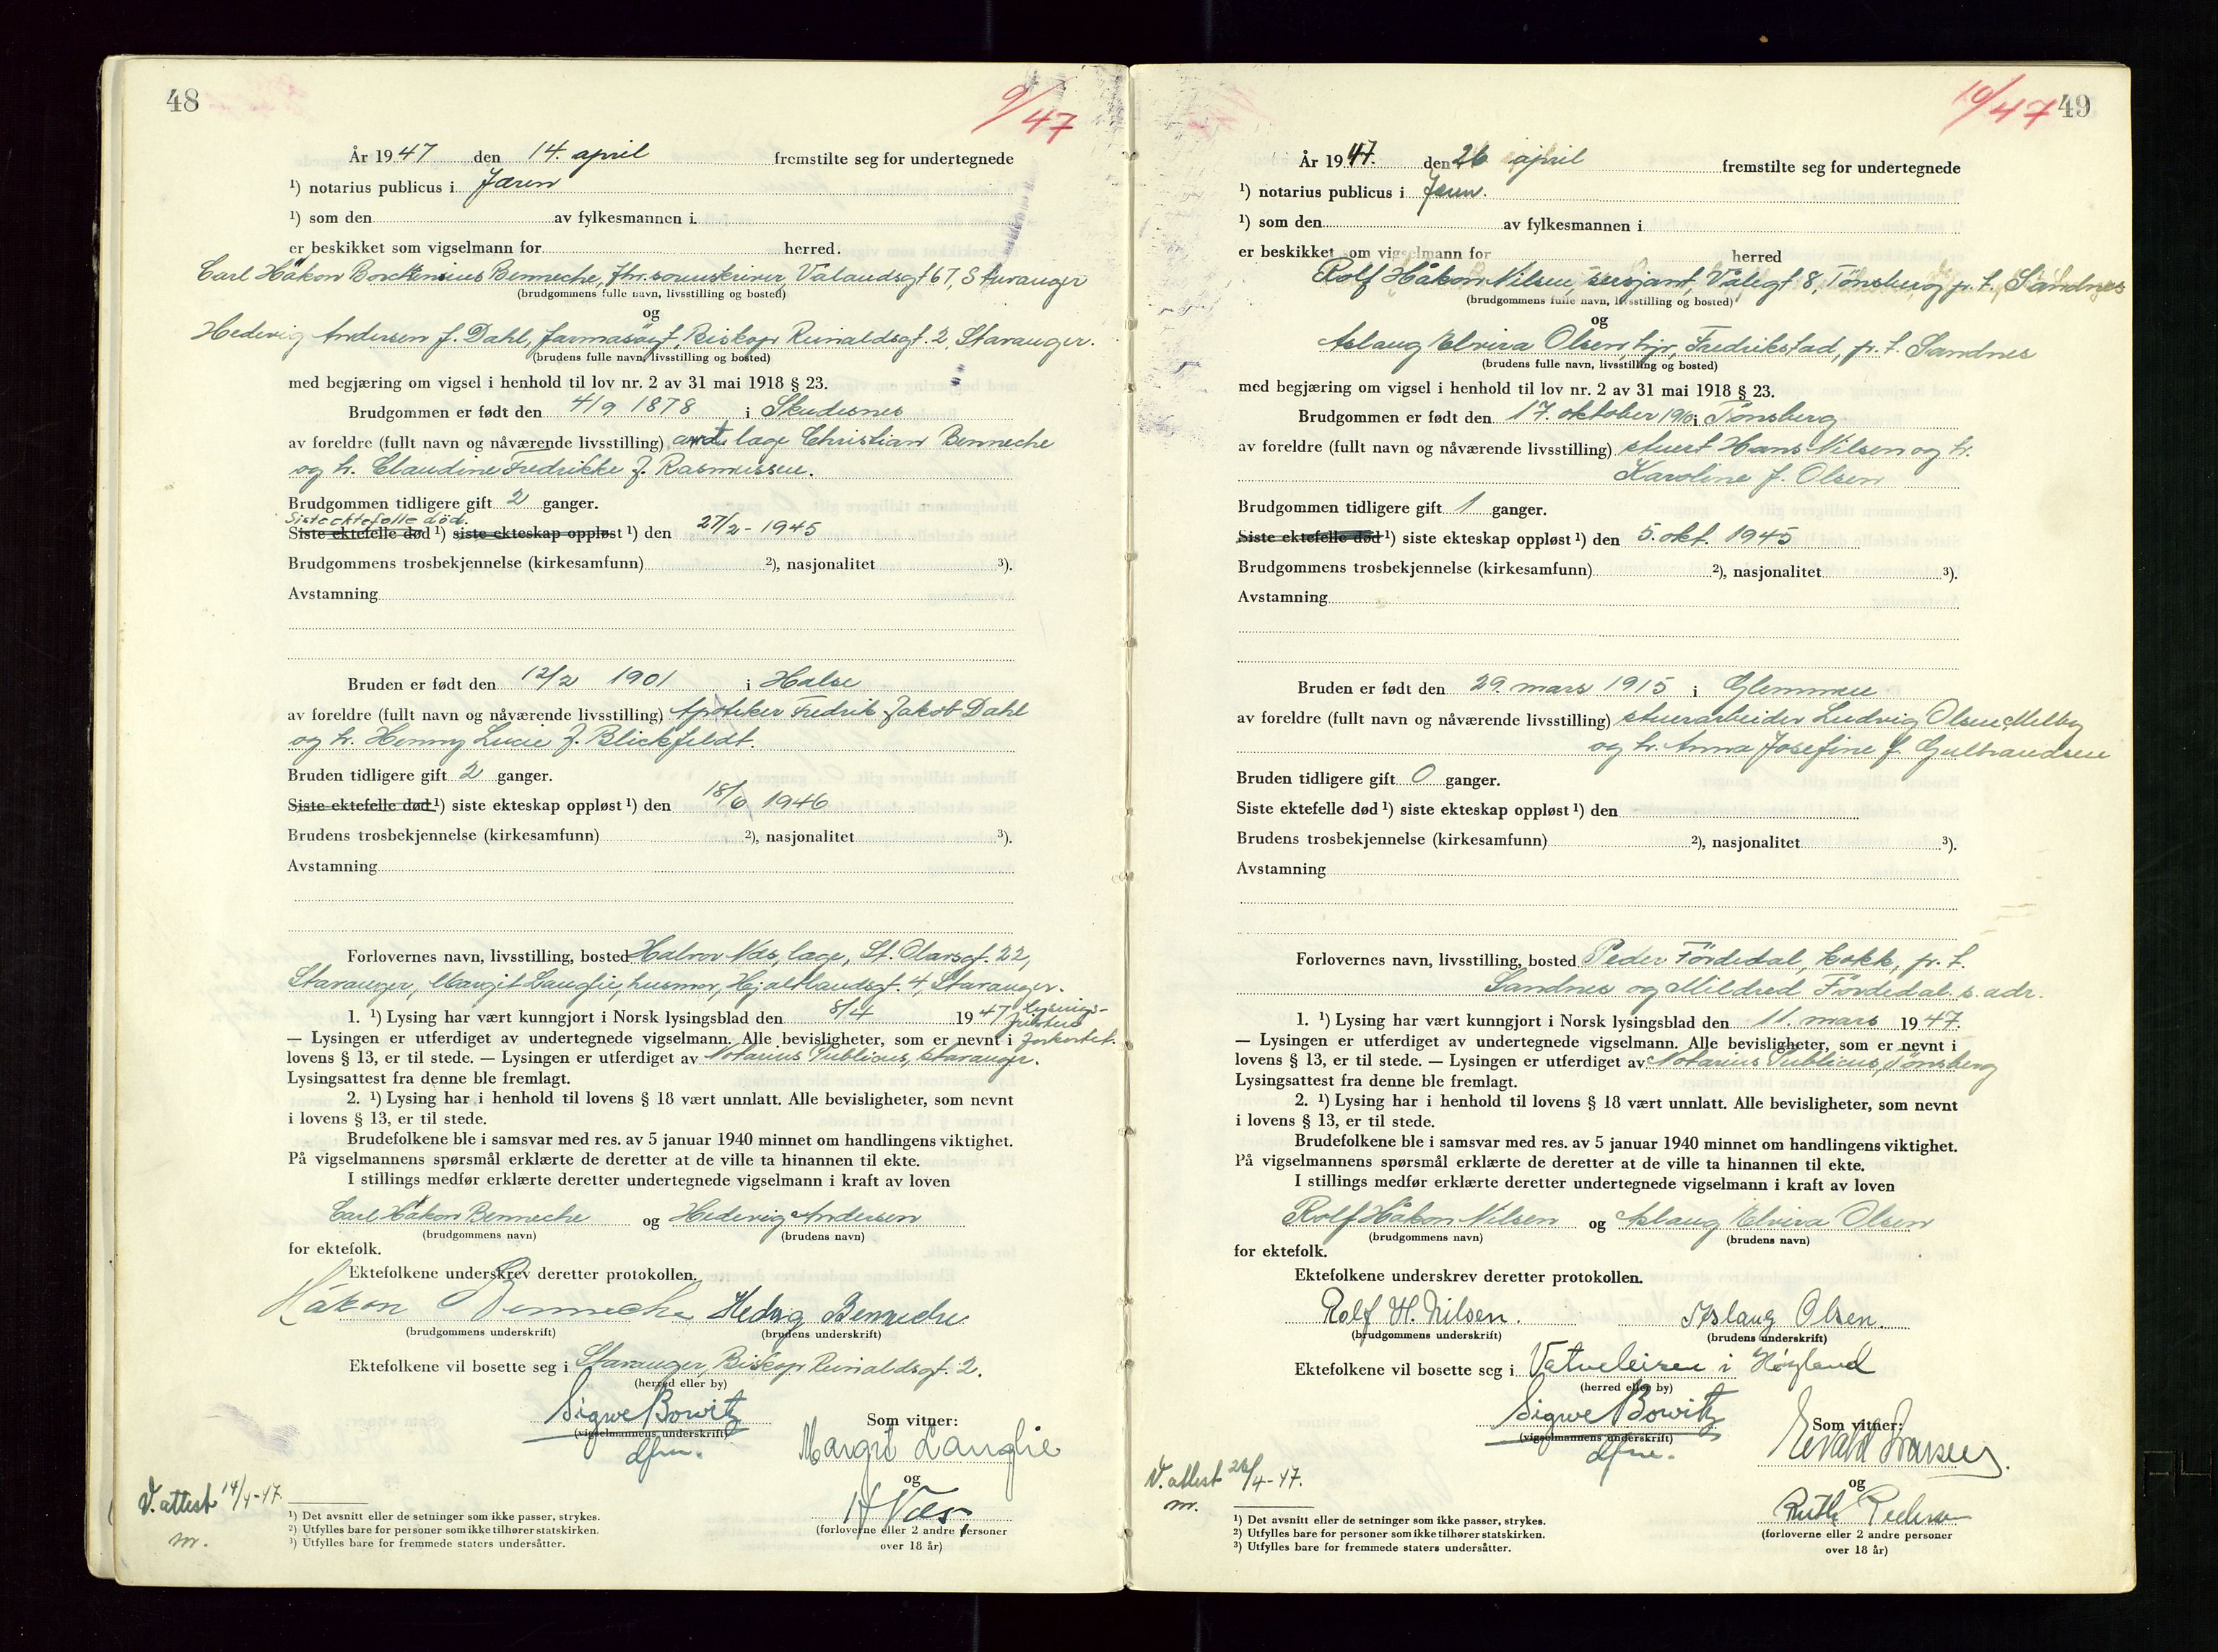 48
9/47
År 1947 den 14. april fremstilte seg for undertegnede
¹) notarius publicus i Jæren
¹) som den av fylkesmannen i
er beskikket som vigselmann for herred.
Carl Håkon Borchenius Benneche, fhv. sorenskriver, Valandsgt 67, Stavanger
(brudgommens fulle navn, livsstilling og bosted)
og
Hedevig Andersen f. Dahl, farmasøyt, Biskop Reinaldsgt. 2, Stavanger.
(brudens fulle navn, livsstilling og bosted)
med begjæring om vigsel i henhold til lov nr. 2 av 31 mai 1918 § 23.
Brudgommen er født den 4/9 1878 i Skudesnes
av foreldre (fullt navn og nåværende livsstilling) læge Christian Benneche
og h. Claudine Fredrikke f. Rasmussen.
Brudgommen tidligere gift 2 ganger.
Siste ektefelle død.
Siste ektefelle død ¹) siste ekteskap oppløst ¹) den 27/2 - 1945
Brudgommens trosbekjennelse (kirkesamfunn) ²), nasjonalitet ³).
Avstamning
Bruden er født den 12/2 1901 i Halse
av foreldre (fullt navn og nåværende livsstilling) Apoteker Fredrik Jakob Dahl
og h. Henny Lucie f. Blickfeldt.
Bruden tidligere gift 2 ganger.
Siste ektefelle død ¹) siste ekteskap oppløst ¹) den 18/6 1946
Brudens trosbekjennelse (kirkesamfunn) ²), nasjonalitet ³).
Avstamning
Forlovernes navn, livsstilling, bosted Halvor Næs, læge, St. Olavsgt. 22,
Stavanger, Margit Langlie, husmor, Hjaltlandsgt. 4, Stavanger.
1. ¹) Lysing har vært kunngjort i Norsk lysingsblad den 8/4 1947 Lysings-
fristen
— Lysingen er utferdiget av undertegnede vigselmann. Alle bevisligheter, som er nevnt i forkortet.
lovens § 13, er til stede. — Lysingen er utferdiget av Notarius Publicus, Stavanger.
Lysingsattest fra denne ble fremlagt.
2. ¹) Lysing har i henhold til lovens § 18 vært unnlatt. Alle bevisligheter, som nevnt
i lovens § 13, er til stede.
Brudefolkene ble i samsvar med res. av 5 januar 1940 minnet om handlingens viktighet.
På vigselmannens spørsmål erklærte de deretter at de ville ta hinannen til ekte.
I stillings medfør erklærte deretter undertegnede vigselmann i kraft av loven
Carl Håkon Benneche og Hedevig Andersen
(brudgommens navn) (brudens navn)
for ektefolk.
Ektefolkene underskrev deretter protokollen.
Håkon Benneche Hedvig Benneche
(brudgommens underskrift) (brudens underskrift)
Ektefolkene vil bosette seg i Stavanger, Biskop Reinaldsgt. 2.
(herred eller by)
Sigwe Bowitz
(vigselmannens underskrift)
dfm.
Som vitner:
Margit Langlie
og
H Næs
(forloverne eller 2 andre personer
over 18 år)
V. attest 14/4-47.
m.
¹) Det avsnitt eller de setninger som ikke passer, strykes.
²) Utfylles bare for personer som ikke tilhører statskirken.
³) Utfylles bare for fremmede staters undersåtter.
10/47
49
År 1947. den 26 april fremstilte seg for undertegnede
¹) notarius publicus i Jæren.
¹) som den av fylkesmannen i
er beskikket som vigselmann for herred
Rolf Håkon Nilsen, sersjant, Vålegt 8, Tønsberg p. t. Sandnes
(brudgommens fulle navn, livsstilling og bosted)
og
Aslaug Elvira Olsen, hjv, Fredrikstad, p. t. Sandnes
(brudens fulle navn, livsstilling og bosted)
med begjæring om vigsel i henhold til lov nr. 2 av 31 mai 1918 § 23.
Brudgommen er født den 17. oktober 1910 i Tønsberg
av foreldre (fullt navn og nåværende livsstilling) stuert Hans Nilsen og h.
Karoline f. Olsen
Brudgommen tidligere gift 1 ganger.
Siste ektefelle død ¹) siste ekteskap oppløst ¹) den 5. okt. 1945
Brudgommens trosbekjennelse (kirkesamfunn) ²), nasjonalitet ³).
Avstamning
Bruden er født den 29. mars 1915 i Glemmen
av foreldre (fullt navn og nåværende livsstilling) stuerarbeider Ludvig Olsen Melby
og h. Anna Josefine f. Gulbrandsen
Bruden tidligere gift 0 ganger.
Siste ektefelle død ¹) siste ekteskap oppløst ¹) den
Brudens trosbekjennelse (kirkesamfunn) ²), nasjonalitet ³).
Avstamning
Forlovernes navn, livsstilling, bosted Peder Førdedal, kokk, p. t.
Sandnes og Mildred Førdedal s. adr.
1. ¹) Lysing har vært kunngjort i Norsk lysingsblad den 11. mars 1947.
— Lysingen er utferdiget av undertegnede vigselmann. Alle bevisligheter, som er nevnt i
lovens § 13, er til stede. — Lysingen er utferdiget av Notarius Publicus, Tønsberg
Lysingsattest fra denne ble fremlagt.
2. ¹) Lysing har i henhold til lovens § 18 vært unnlatt. Alle bevisligheter, som nevnt
i lovens § 13, er til stede.
Brudefolkene ble i samsvar med res. av 5 januar 1940 minnet om handlingens viktighet.
På vigselmannens spørsmål erklærte de deretter at de ville ta hinannen til ekte.
I stillings medfør erklærte deretter undertegnede vigselmann i kraft av loven
Rolf Håkon Nilsen og Aslaug Elvira Olsen
(brudgommens navn) (brudens navn)
for ektefolk.
Ektefolkene underskrev deretter protokollen.
Rolf H. Nilsen. Aslaug Olsen.
(brudgommens underskrift) (brudens underskrift)
Ektefolkene vil bosette seg i Vatneleiren i Høyland
(herred eller by)
Sigwe Bowitz
(vigselmannens underskrift)
dfm.
Som vitner:
og
Ruth
(forloverne eller 2 andre personer
over 18 år)
V. attest 26/4-47.
m.
¹) Det avsnitt eller de setninger som ikke passer, strykes.
²) Utfylles bare for personer som ikke tilhører statskirken.
³) Utfylles bare for fremmede staters undersåtter.